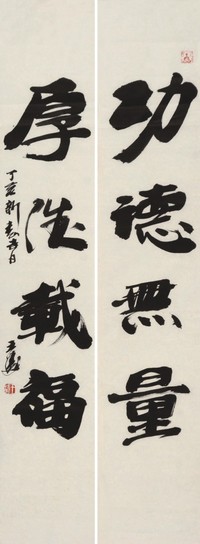 功德無量
厚德載福
丁亥新春吉日